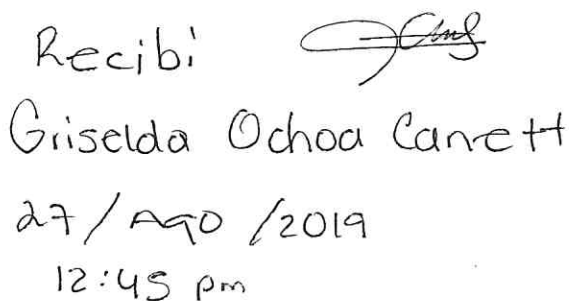 Recibi
Griselda Ochoa Canett
27/AGO/2019
12:45 pm